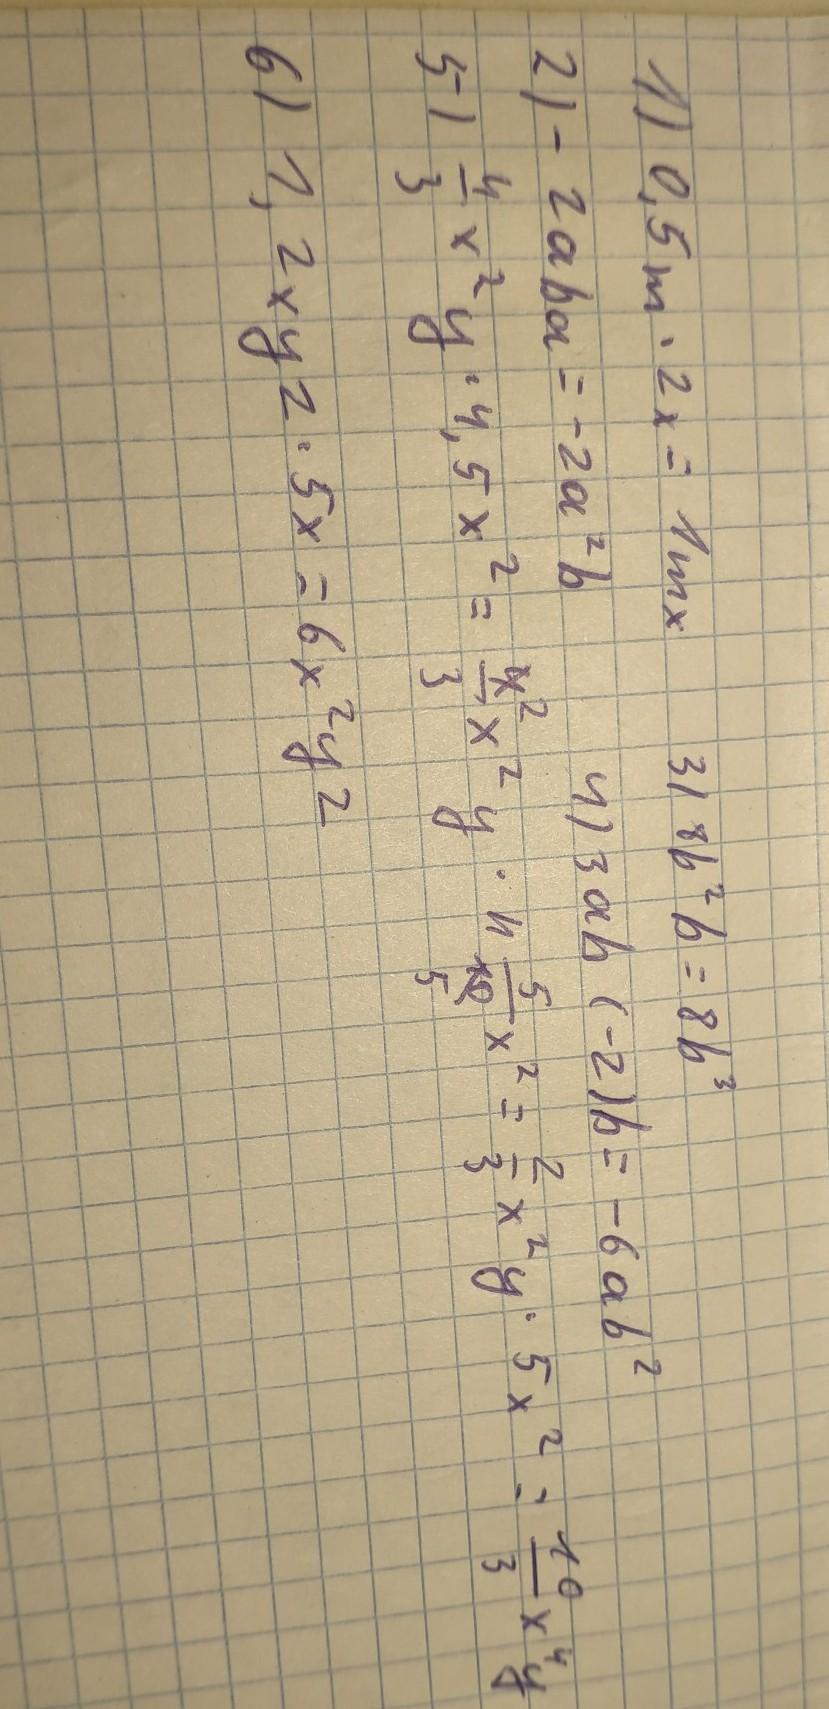 1) 0,5m · 2x = 1mx 3) 8b²b = 8b³
2) - 2aba = -2a²b 4) 3ab (-2)b = -6ab²
5) 4/3 x²y · 4,5x² = 4²/3 x²y · 4 5/10 5 x² = 2/3 x²y · 5x² = 10/3 x⁴y
6) 1,2xyz · 5x = 6x²yz